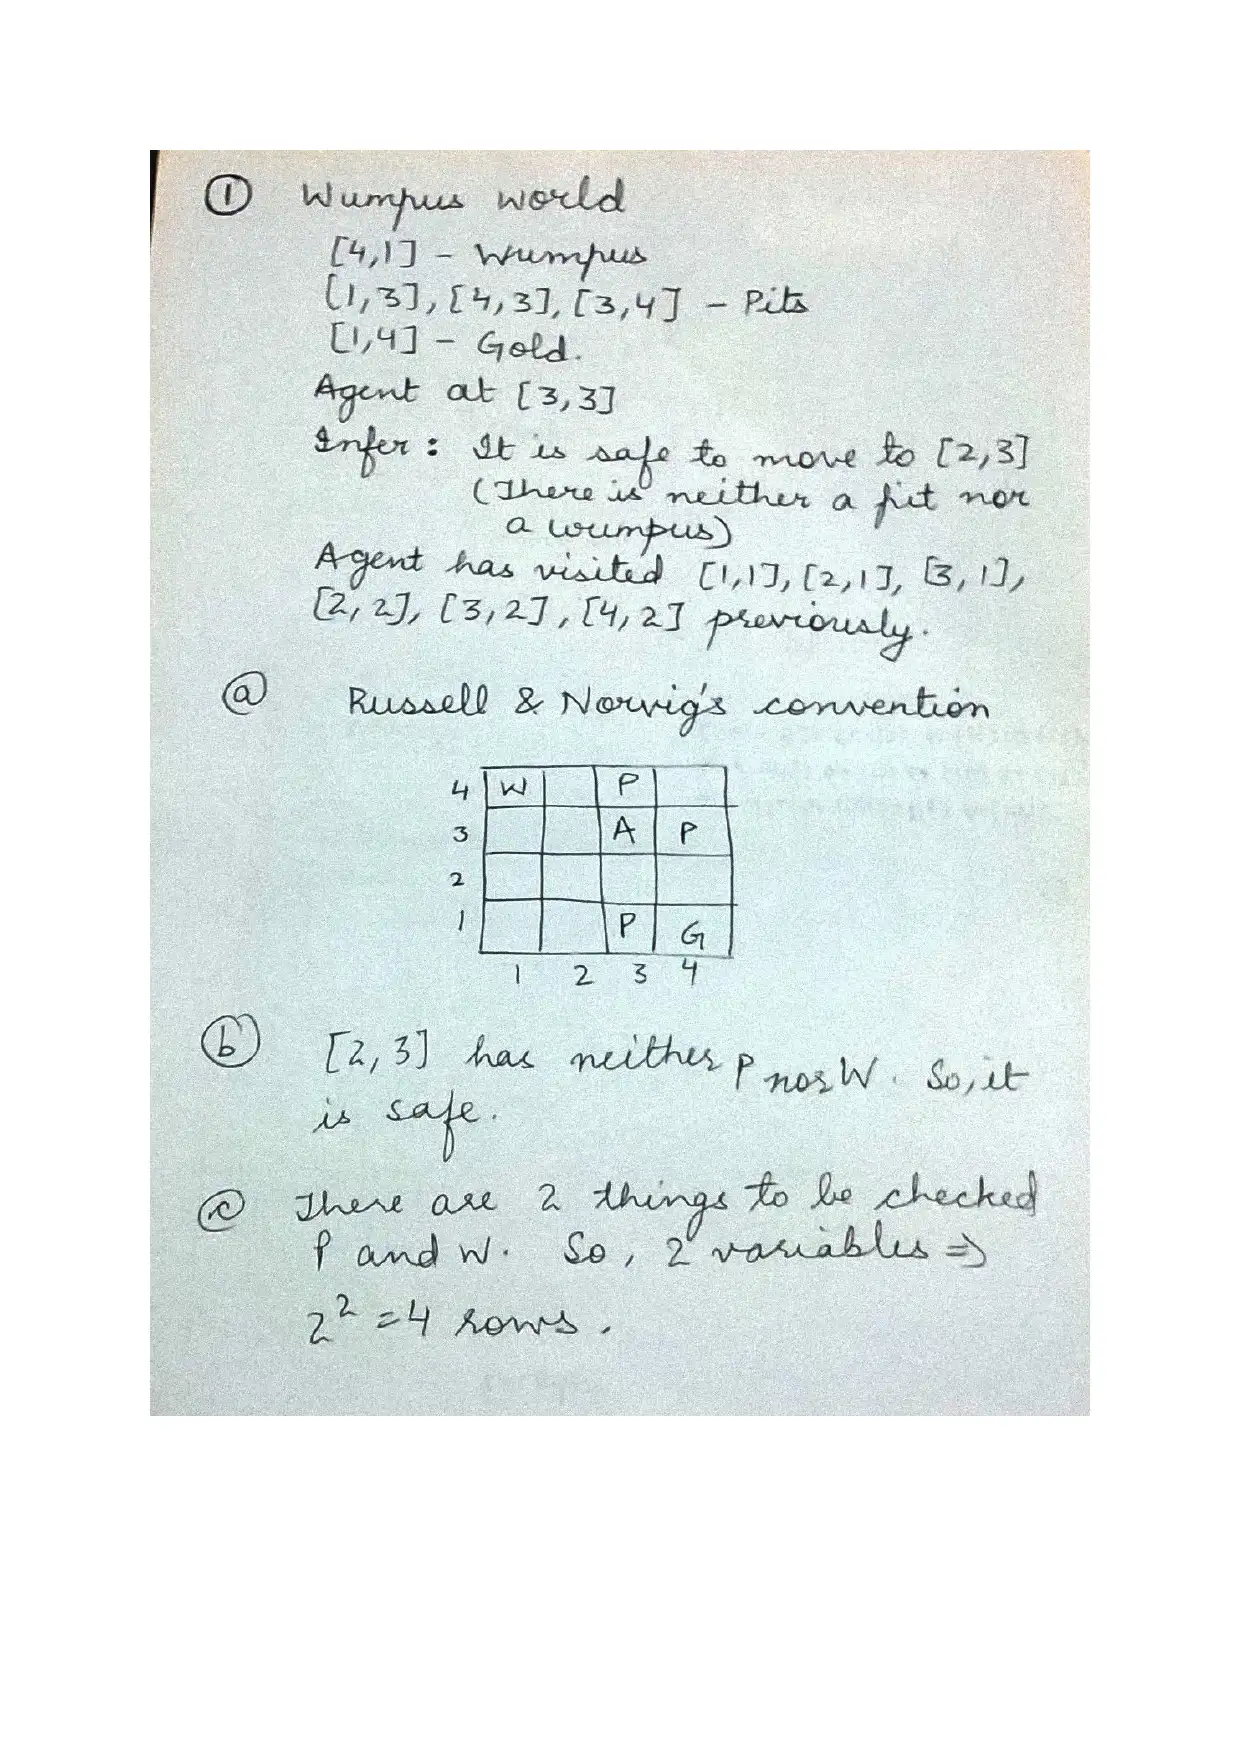 ① Wumpus world
[4,1] - Wumpus
[1,3], [4,3], [3,4] - Pits
[1,4] - Gold.
Agent at [3,3]
Infer : It is safe to move to [2,3]
(There is neither a pit nor
a wumpus)
Agent has visited [1,1], [2,1], [3,1],
[2,2], [3,2], [4,2] previously.
ⓐ Russell & Norvig's convention
4 W P
3 A P
2
1 P G
1 2 3 4
ⓑ [2,3] has neither P nor W. So, it
is safe.
ⓒ There are 2 things to be checked
P and W. So, 2 variables ⇒
2² = 4 rows.